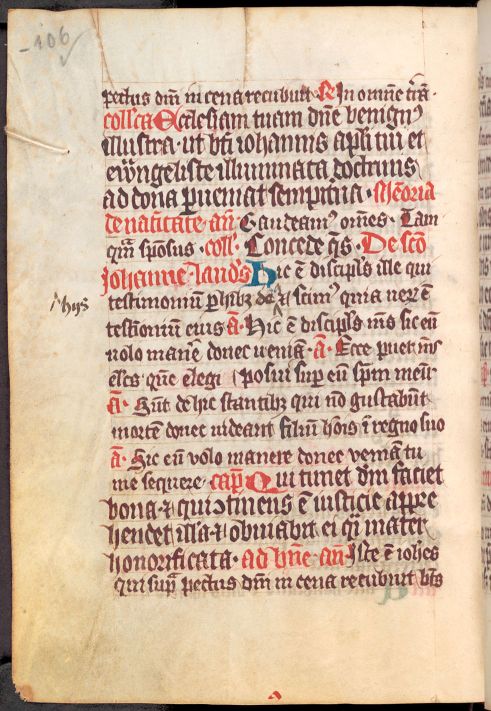 106
pectus dm̄ in cena recubuit · R̄ In omnē t̄rā ·
coll̄cā Eccl̄esiam tuam dn̄e benign⁹
illustra · ut bt̄i iohannis apl̄i tui et
ewangeliste illuminata doctrinis
ad dona p̄ueniat semp̄it̄na ·
de natiuitate · an̄ Gaudeam⁹ om̄es · Tam
qm̄ spōsus · coll̄ · Concede q̄s · De scō
Johanne · laud̄s Hic ē discipl̄s ille qui
testimoniū p̄hibz de
hijs
⁊ scim⁹ quia uerū ē
testīoniū eius ā · Hic ē discipl̄s m̄s sic eū
uolo manē donec ueniā · ā · Ecce puer m̄s
elc̄s quē elegi posui sup̄ eū spm̄ meū
ā · Sūt de hic stantibz qui nō gustabūt
mortē donec uideant filiū hoīs ī regno suo
ā · Sic eū volo manere donec veniam tu
me sequere · cap̄ Qui timet dm̄ faciet
bona · ⁊ qui ɔtinens ē iusticie appre
hendet illā · ⁊ obuiabit ei q̄i mater
honorificata · ad bn̄e · an̄ · Iste ē ioh̄es
qui sup̄ pectus dm̄ in cena recubuit bt̄s